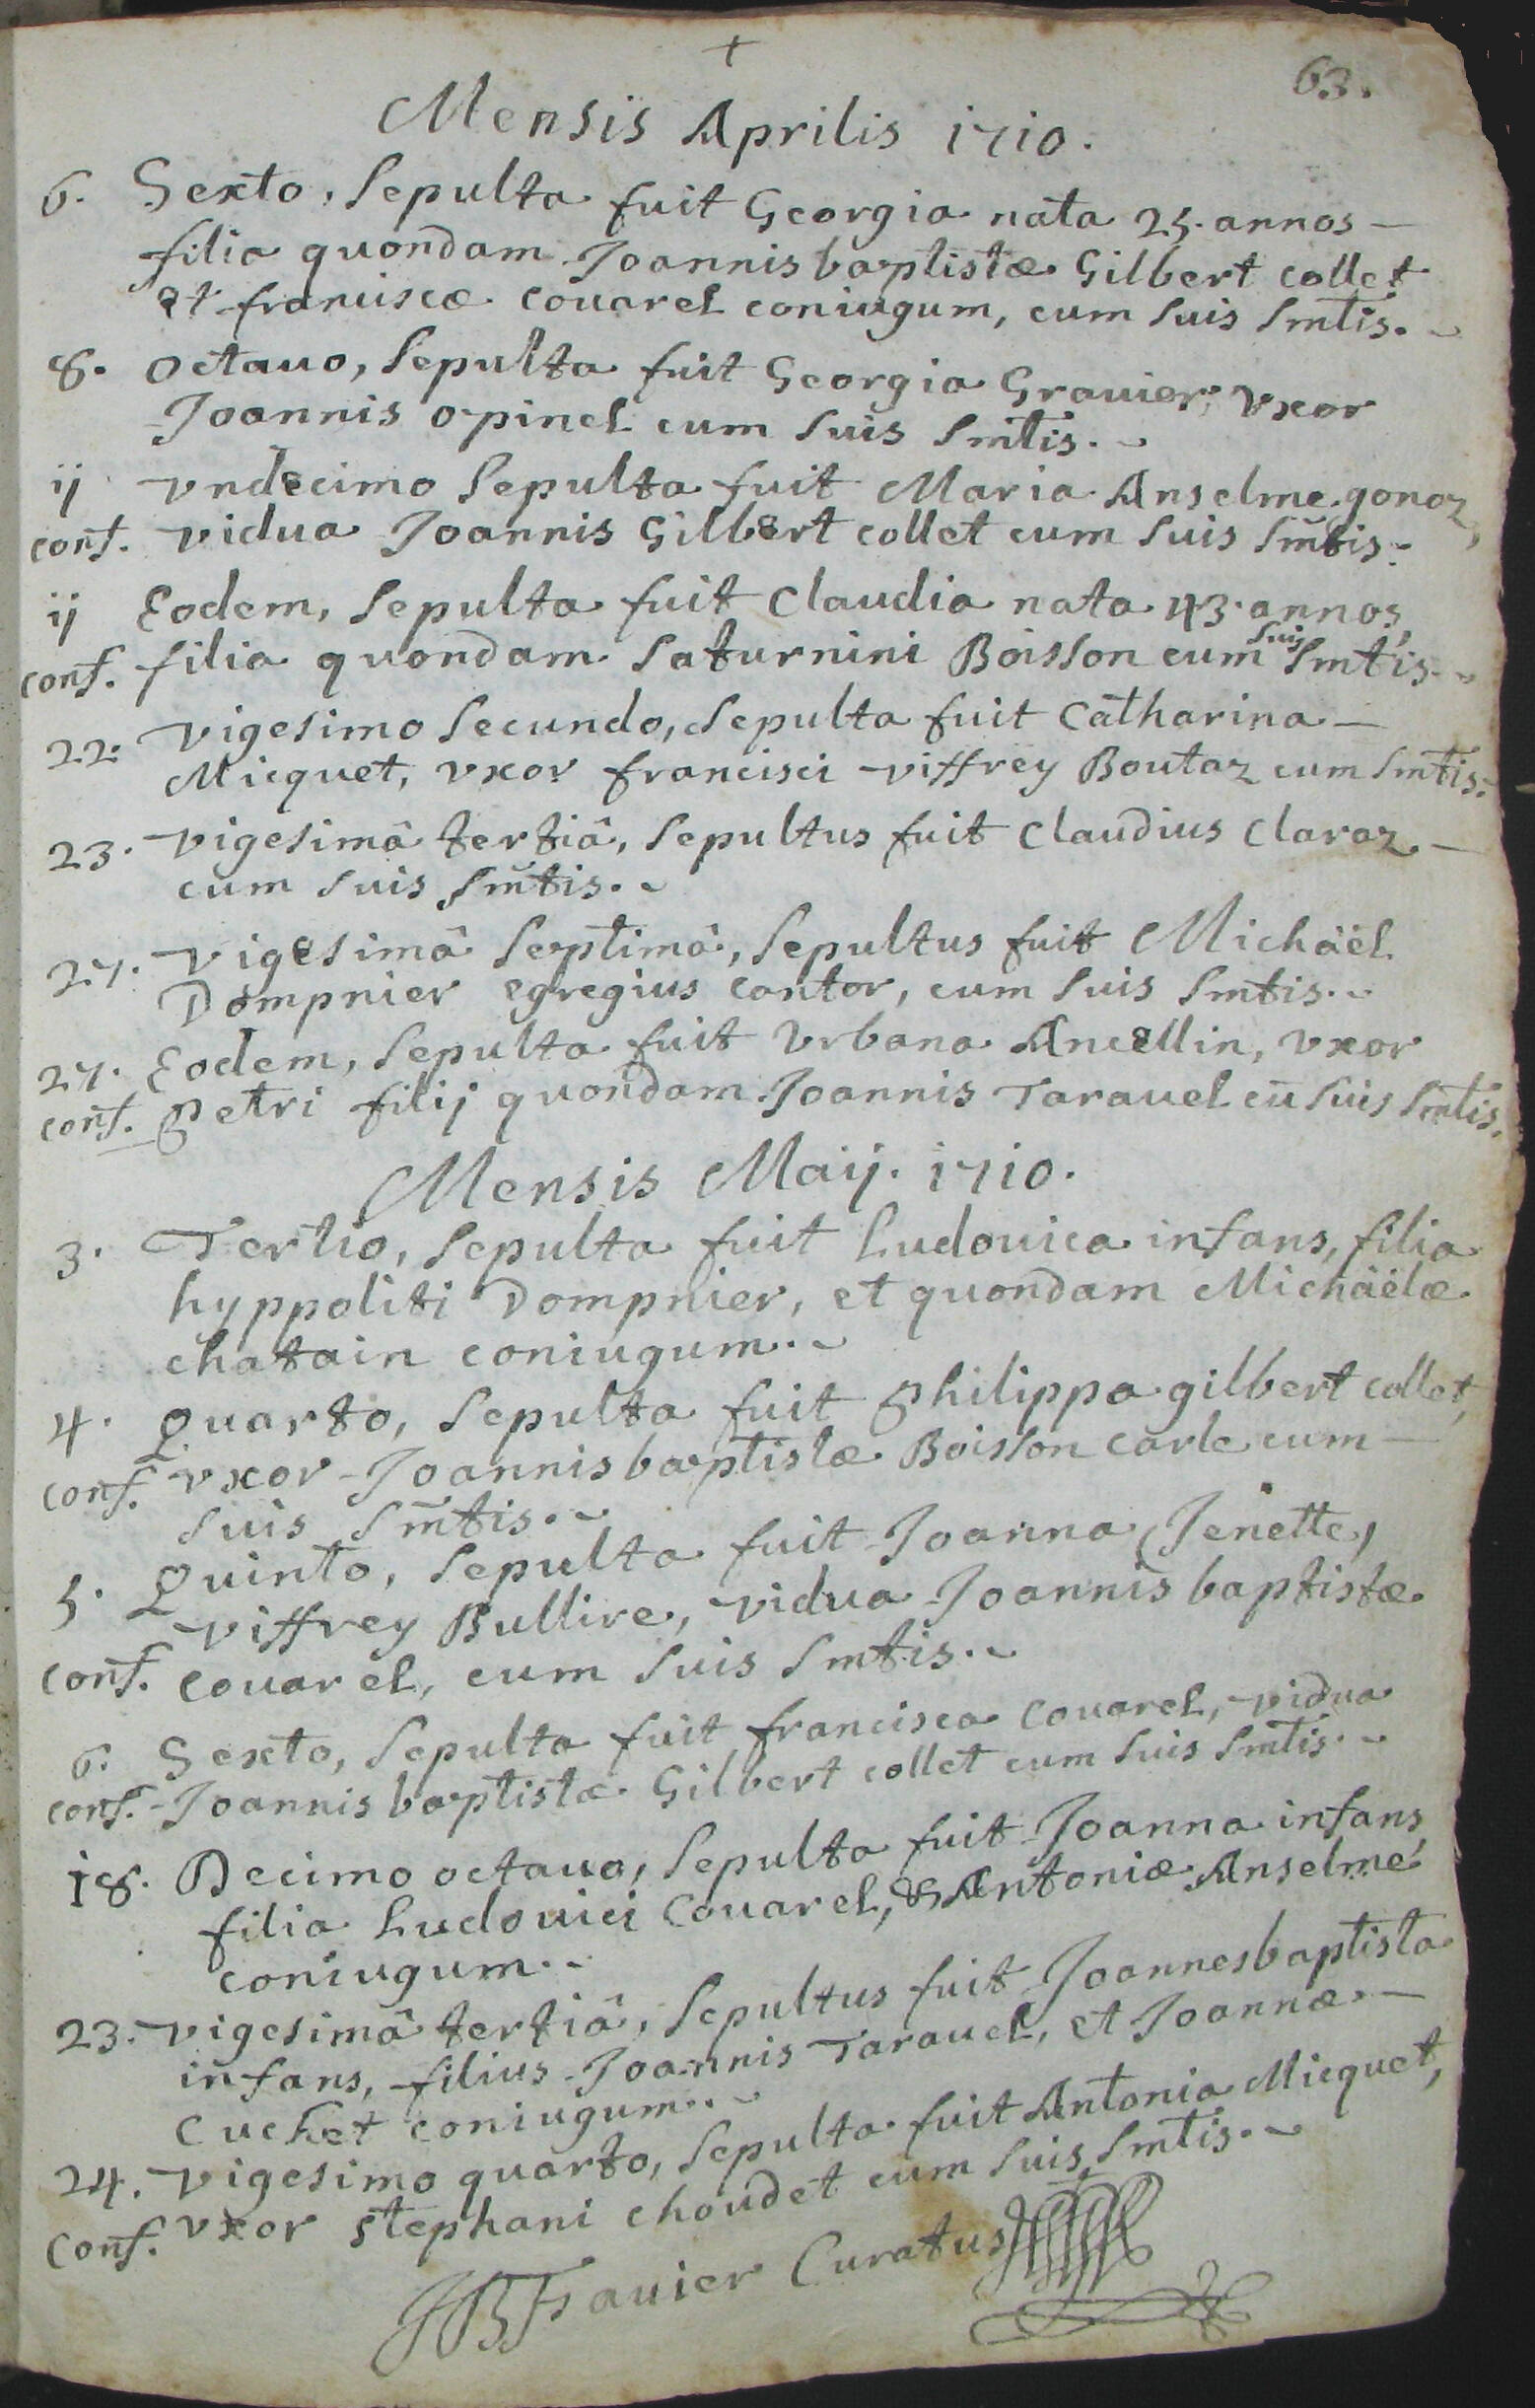 +
63.
Mensis Aprilis 1710.
6. Sexto, sepulta fuit Georgia nata 25. annos —
filia quondam Joannisbaptistæ Gilbert collet
et franciscæ couarel coniugum, cum suis smtis.
8. octauo, sepulta fuit Georgia Grauier, vxor
Joannis opinel cum suis smtis.
ij vndecimo sepulta fuit Maria Anselme gonoz,
conf. vidua Joannis Gilbert collet cum suis smtis.
ij Eodem, sepulta fuit claudia nata 43. annos,
conf. filia quondam saturnini Boisson cum suis smtis.
22. vigesimo secundo, sepulta fuit catharina —
Micquet, vxor francisci viffrey Boutaz cum smtis.
23. vigesimâ tertiâ, sepultus fuit claudius claraz —
cum suis smtis.
27. vigesimâ septimâ, sepultus fuit Michäel
Dompnier egregius cantor, cum suis smtis.
27. Eodem, sepulta fuit vrbana Ancellin, vxor
conf. petri filij quondam Joannis Tarauel cū suis smtis.
Mensis Maij. 1710.
3. Tertio, sepulta fuit Ludouica infans, filia
hyppoliti Dompnier, et quondam Michäelæ
chatain coniugum.
4. Quarto, sepulta fuit philippa gilbert collet,
conf. vxor Joannisbaptistæ Boisson carle cum —
suis smtis.
5. Quinto, sepulta fuit Joanna, Jenette,
viffrey Bullire, vidua Joannis baptistæ
conf. couarel, cum suis smtis.
6. Sexto, sepulta fuit francisca couarel, vidua
conf. Joannisbaptistæ Gilbert collet cum suis smtis.
18. Decimo octauo, sepulta fuit Joanna infans,
filia Ludouici couarel, & Antoniæ Anselme
coniugum.
23. vigesimâ tertiâ, sepultus fuit Joannesbaptista
infans, filius Joannis Tarauel, et Joannæ —
cuchet coniugum.
24. vigesimo quarto, sepulta fuit Antonia Micquet,
conf. vxor stephani choudet cum suis smtis.
Curatus